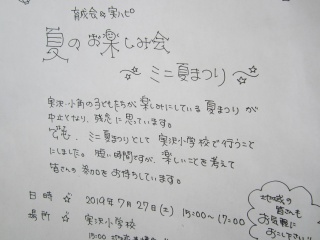 育成会&実ハピ
夏のお楽しみ会
~ミニ夏まつり~
実沢小育の子どもたちが 楽しみにしている 夏まつり が
中止となり、残念に思っています。
でも、ミニ夏まつりとして 実沢小学校で 行うこと
にしました。 短い時間ですが、楽しいことを考えて
皆さんの 参加を お待ちしています。
日時 ☆ 2019年7月27日(土) 15:00~17:00
場所 ☆ 実沢小学校
15:00
地域の
皆さんも
お気軽に